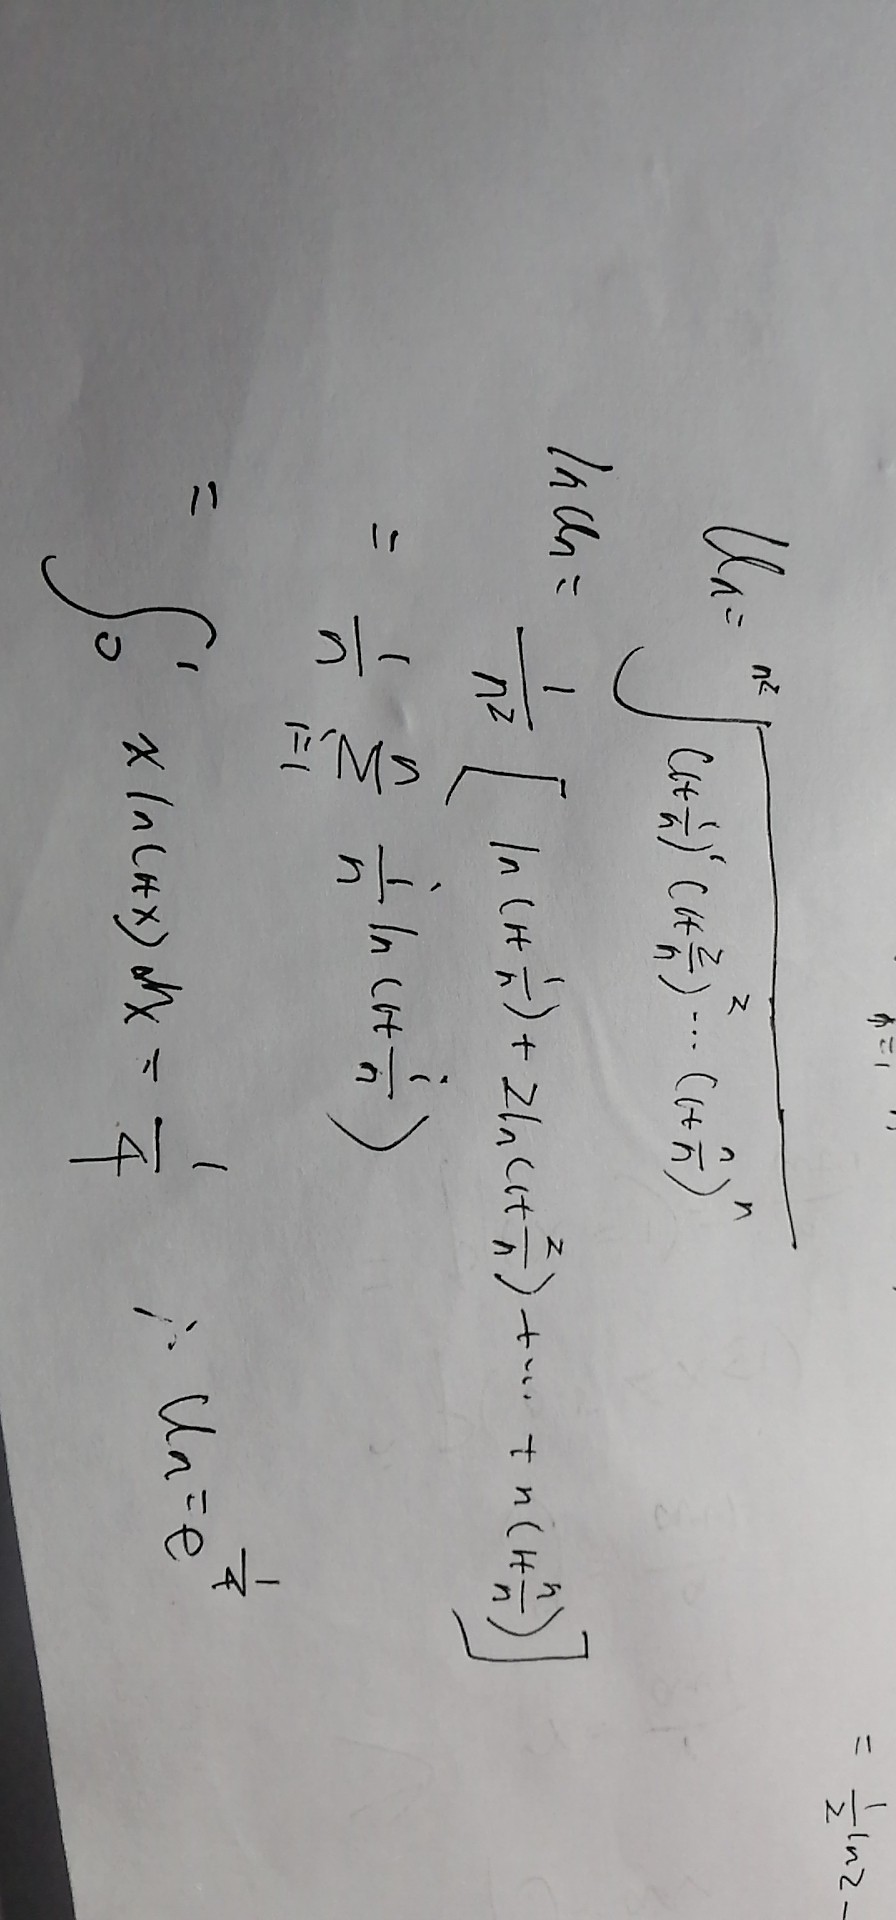 n=1
= 1/2 ln2 -
Un = ⁿ²√((1+1/n)¹ (1+2/n)² ... (1+n/n)ⁿ)
ln Un = 1/n² [ ln(1+1/n) + 2ln(1+2/n) + ... + n(1+n/n) ]
= 1/n Σ_{i=1}^{n} i/n ln(1+i/n)
= ∫₀¹ x ln(1+x) dx = 1/4 ∴ Un = e^{1/4}